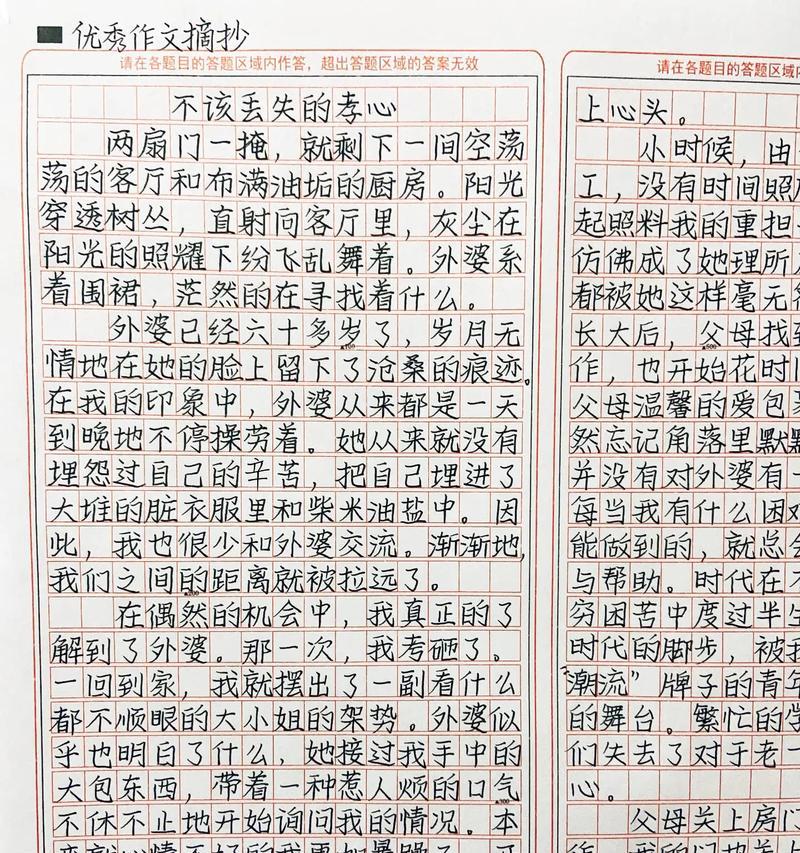 优秀作文摘抄
请在各题目的答题区域内作答，超出答题区域的答案无效
不该丢失的孝心
两扇门一掩，就剩下一间空荡
荡的客厅和布满油垢的厨房。阳光
穿透树丛，直射向客厅里，灰尘在
阳光的照耀下纷飞乱舞着。外婆系
着围裙，茫然的在寻找着什么。
外婆已经六十多岁了，岁月无
情地在她的脸上留下了沧桑的痕迹。
在我的印象中，外婆从来都是一天
到晚地不停操劳着。她从来就没有
埋怨过自己的辛苦，把自己埋进了
大堆的脏衣服里和柴米油盐中。因
此，我也很少和外婆交流。渐渐地，
我们之间的距离就被拉远了。
在偶然的机会中，我真正的了
解到了外婆。那一次，我考砸了。
一回到家，我就摆出了一副看什么
都不顺眼的大小姐的架势。外婆似
乎也明白了什么，她接过我手中的
大包东西，带着一种惹人烦的口气
不休不止地开始询问我的情况。本
请在各题目的答题区域内
上心头。
小时候，由
工，没有时间照
起照料我的重担
仿佛成了她理所
都被她这样毫无
长大后，父母找
作，也开始花时
父母温馨的爱包
然忘记角落里默默
并没有对外婆有一
每当我有什么困难
能做到的，就总会
与帮助。时代在
穷困苦中度过半生
时代的脚步，被
“潮流”牌子的青年
的舞台。繁忙的学
们失去了对于老一
心。
父母关上房门